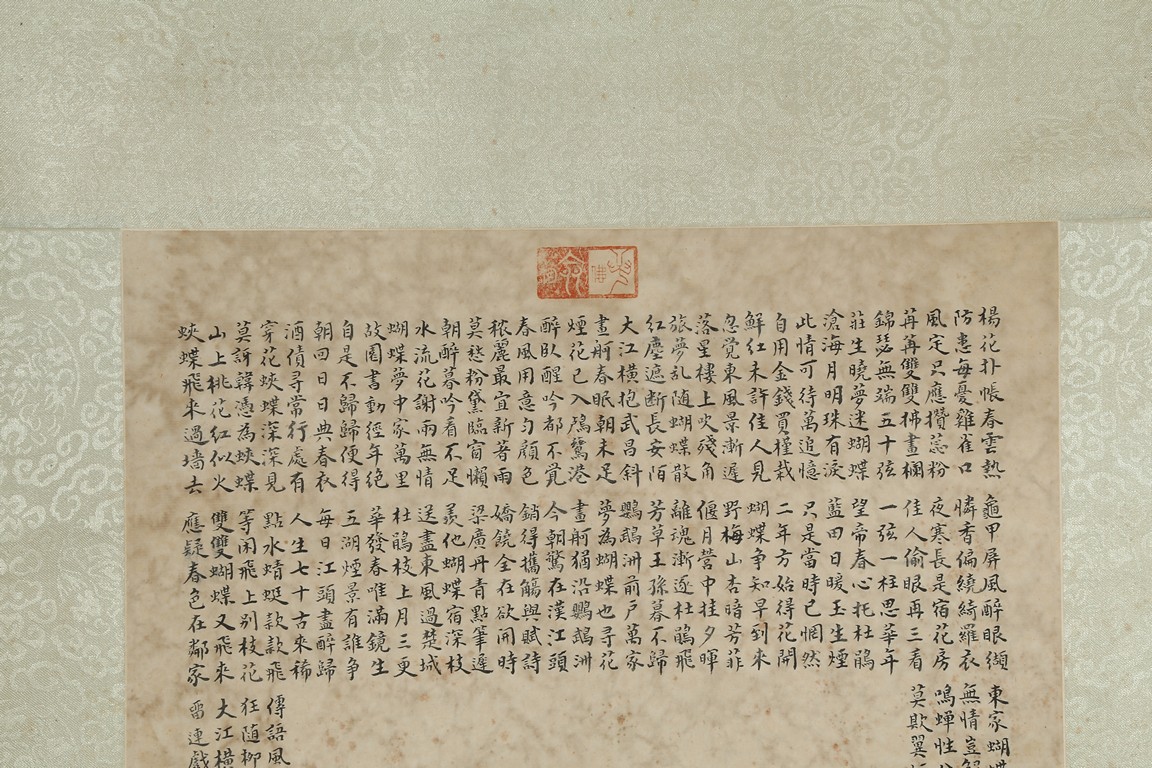 楊花扑帳春雲熱 龜甲屏風醉眼纈 東家蝴蝶
防患每憂雞雀口 憐香偏繞綺羅衣 無情豈解
風定只應攢蕊粉 夜寒長是宿花房 鳴蟬性
苒苒雙雙拂畫欄 佳人偷眼再三看 莫欺翼
錦瑟無端五十弦 一弦一柱思華年
莊生曉夢迷蝴蝶 望帝春心托杜鵑
滄海月明珠有淚 藍田日暖玉生煙
此情可待萬追憶 只是當時已惘然
自用金錢買槿栽 二年方始得花開
鮮紅未許佳人見 蝴蝶争知早到來
忽覺東風景漸遲 野梅山杏暗芳菲
落星樓上吹殘角 偃月營中挂夕暉
旅夢乱随蝴蝶散 離魂漸逐杜鵑飛
紅塵遮断長安陌 芳草王孫暮不歸
大江橫抱武昌斜 鸚鵡洲前戶萬家
畫舸春眠朝未足 夢為蝴蝶也尋花
煙花已入鸕鶿港 畫舸猶沿鸚鵡洲
醉臥醒吟都不覺 今朝驚在漢江頭
春風用意勻顏色 銷得攜觴與賦詩
穠麗最宜新著雨 嬌饒全在欲開時
莫愁粉黛臨窗懶 梁廣丹青點筆遲
朝醉暮吟看不足 羨他蝴蝶宿深枝
水流花謝雨無情 送盡東風過楚城
蝴蝶夢中家萬里 杜鵑枝上月三更
故園書動經年絕 華發春唯滿鏡生
自是不歸歸便得 五湖煙景有誰争
朝回日日典春衣 每日江頭盡醉歸
酒債尋常行處有 人生七十古來稀
穿花蛺蝶深深見 點水蜻蜓款款飛 傳語風
莫訝韓憑為蛺蝶 等闲飛上别枝花 狂随柳
山上桃花紅似火 雙雙蝴蝶又飛來 大江橫
蛺蝶飛來過墙去 應疑春色在鄰家 留連戲